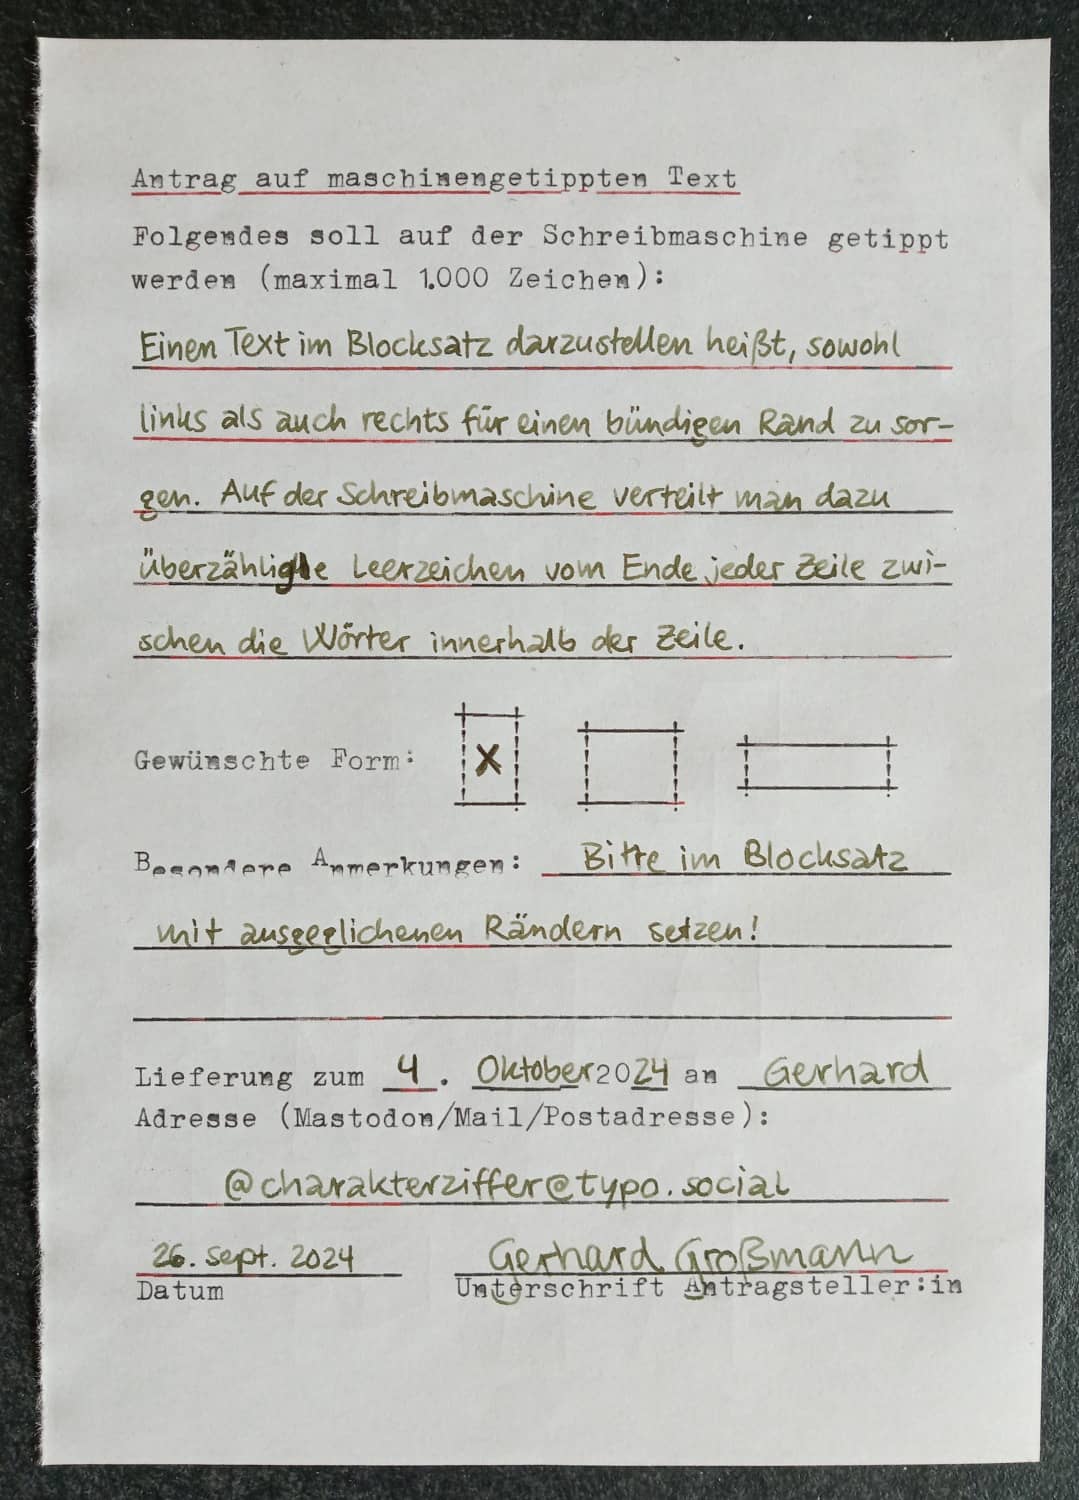 Antrag auf maschinengetippten Text
Folgendes soll auf der Schreibmaschine getippt
werden (maximal 1.000 Zeichen):
Einen Text im Blocksatz darzustellen heißt, sowohl
links als auch rechts für einen bündigen Rand zu sor-
gen. Auf der Schreibmaschine verteilt man dazu
überzählige Leerzeichen vom Ende jeder Zeile zwi-
schen die Wörter innerhalb der Zeile.
Gewünschte Form: X
Besondere Anmerkungen: Bitte im Blocksatz
mit ausgeglichenen Rändern setzen!
Lieferung zum 4. Oktober 2024 an Gerhard
Adresse (Mastodon/Mail/Postadresse):
@charakterziffer@typo.social
26. Sept. 2024 Gerhard Großmann
Datum Unterschrift Antragsteller:in